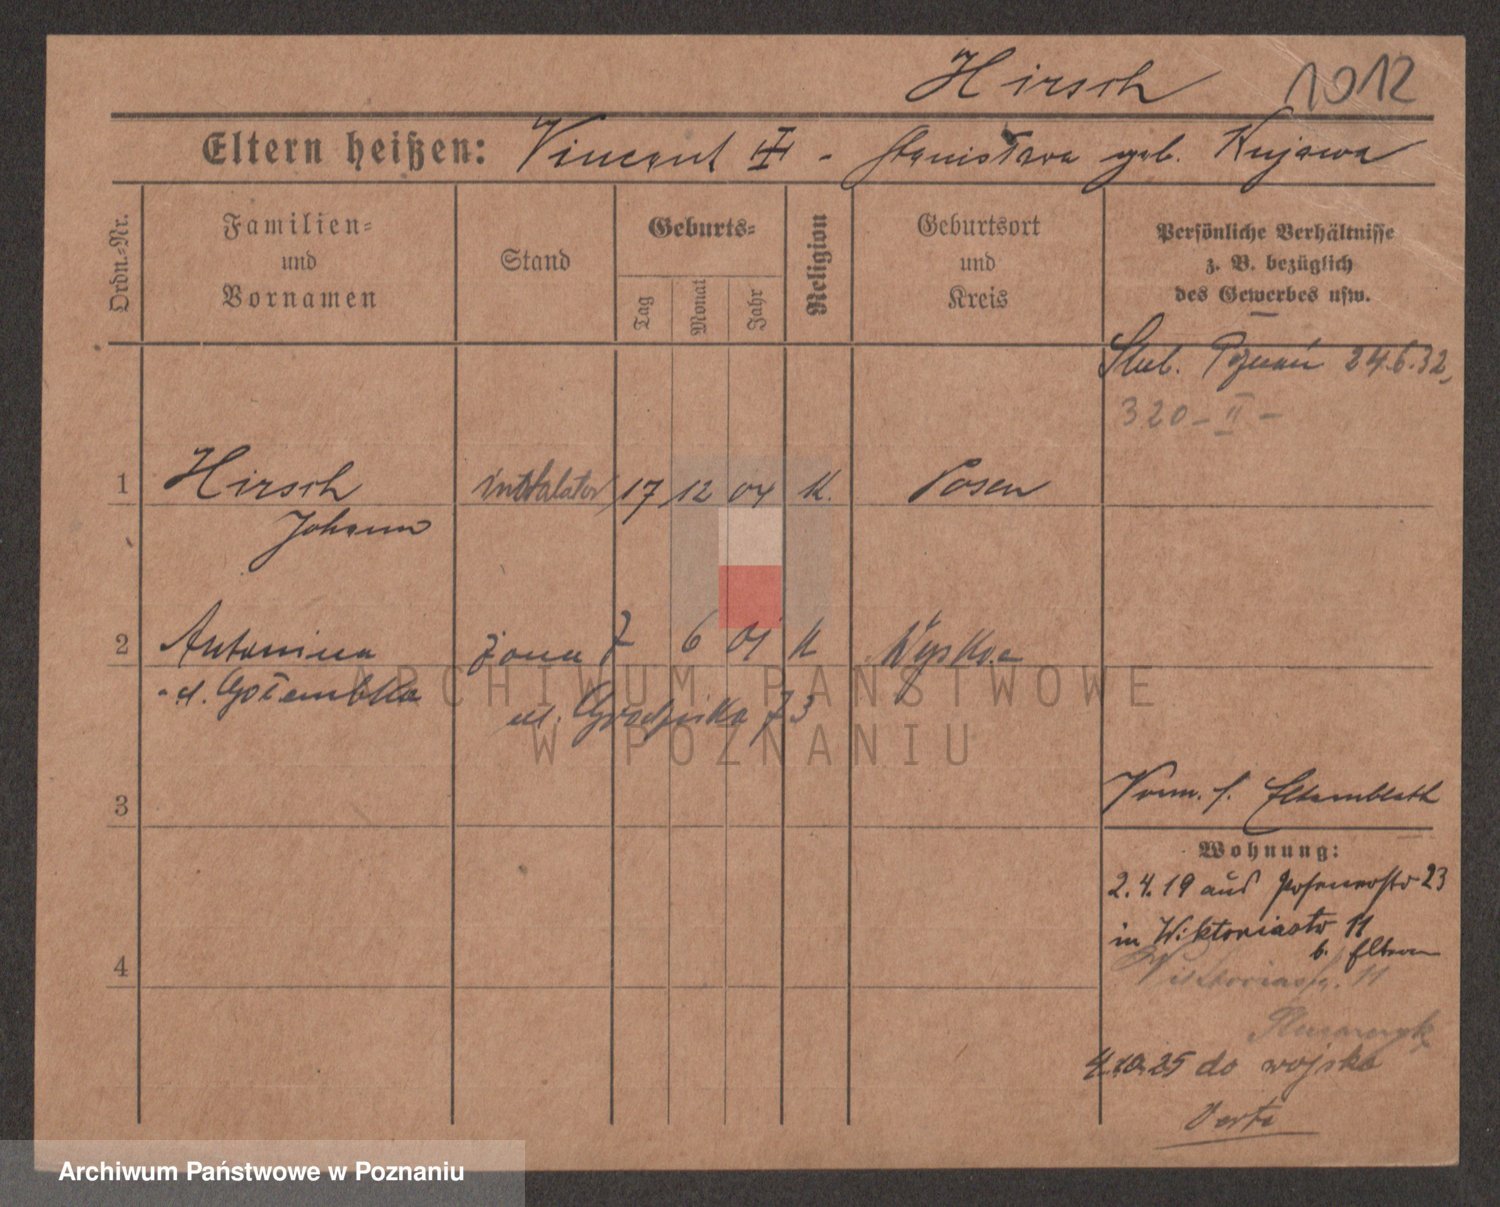 Hirsch 1012
Eltern heißen: Vincent - Stanisława geb. Kujawa
Ordn.-Nr.
Familien- und Vornamen
Stand
Geburts-
Tag
Monat
Jahr
Religion
Geburtsort und Kreis
Persönliche Verhältnisse
z. B. bezüglich
des Gewerbes usw.
Ślub. Poznań 24.6.32,
320 - II -
1 Hirsch instalator 17 12 04 K. Posen
Johann
2 Antonina żona 7 6 01 K
z d. Gołembka
ul. 73
ARCHIWUM PAŃSTWOWE
W POZNANIU
3
Vorm. s. Elternblatt
Wohnung:
2.4.19 aus Posenerstr 23
in Wiktoriastr 11
b. Eltern
4
Wiktoriastr. 11
4.10.25 do wojska
Verte
Archiwum Państwowe w Poznaniu